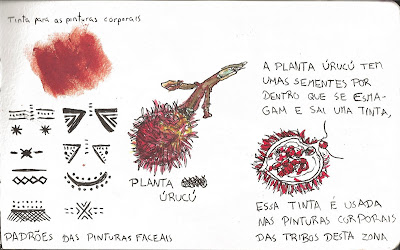 Tinta para as pinturas corporais
A PLANTA ÚRUCÚ TEM
UMAS SEMENTES POR
DENTRO QUE SE ESMA-
GAM E SAI UMA TINTA,
PLANTA
ÚRUCÚ
ESSA TINTA É USADA
NAS PINTURAS CORPORAIS
DAS TRIBOS DESTA ZONA
PADRÕES DAS PINTURAS FACEAIS